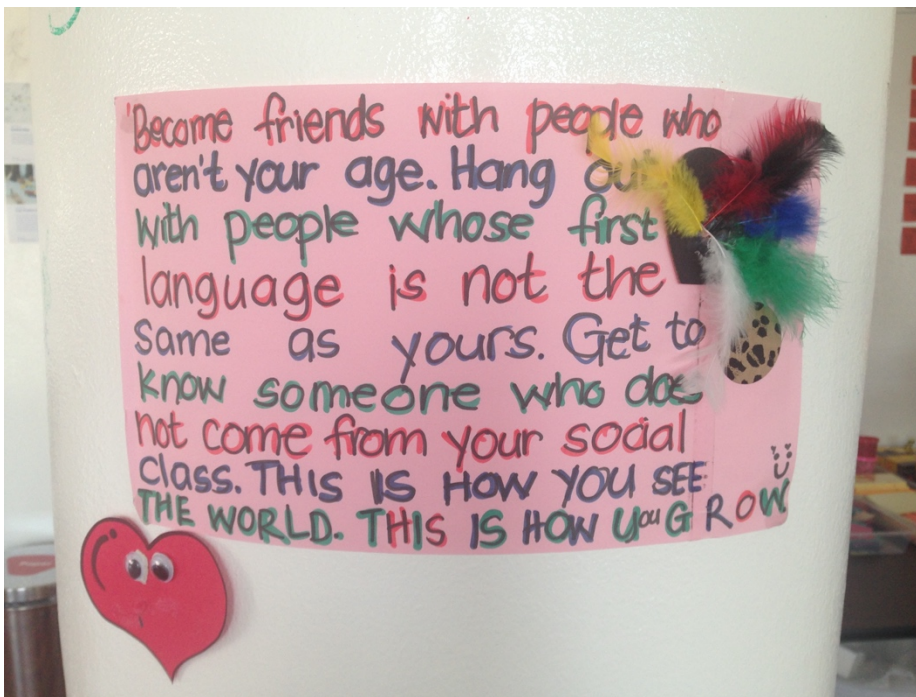 'Become friends with people who
aren't your age. Hang out
with people whose first
language is not the
same as yours. Get to
know someone who does
not come from your social
class. THIS IS HOW YOU SEE
THE WORLD. THIS IS HOW YOU GROW